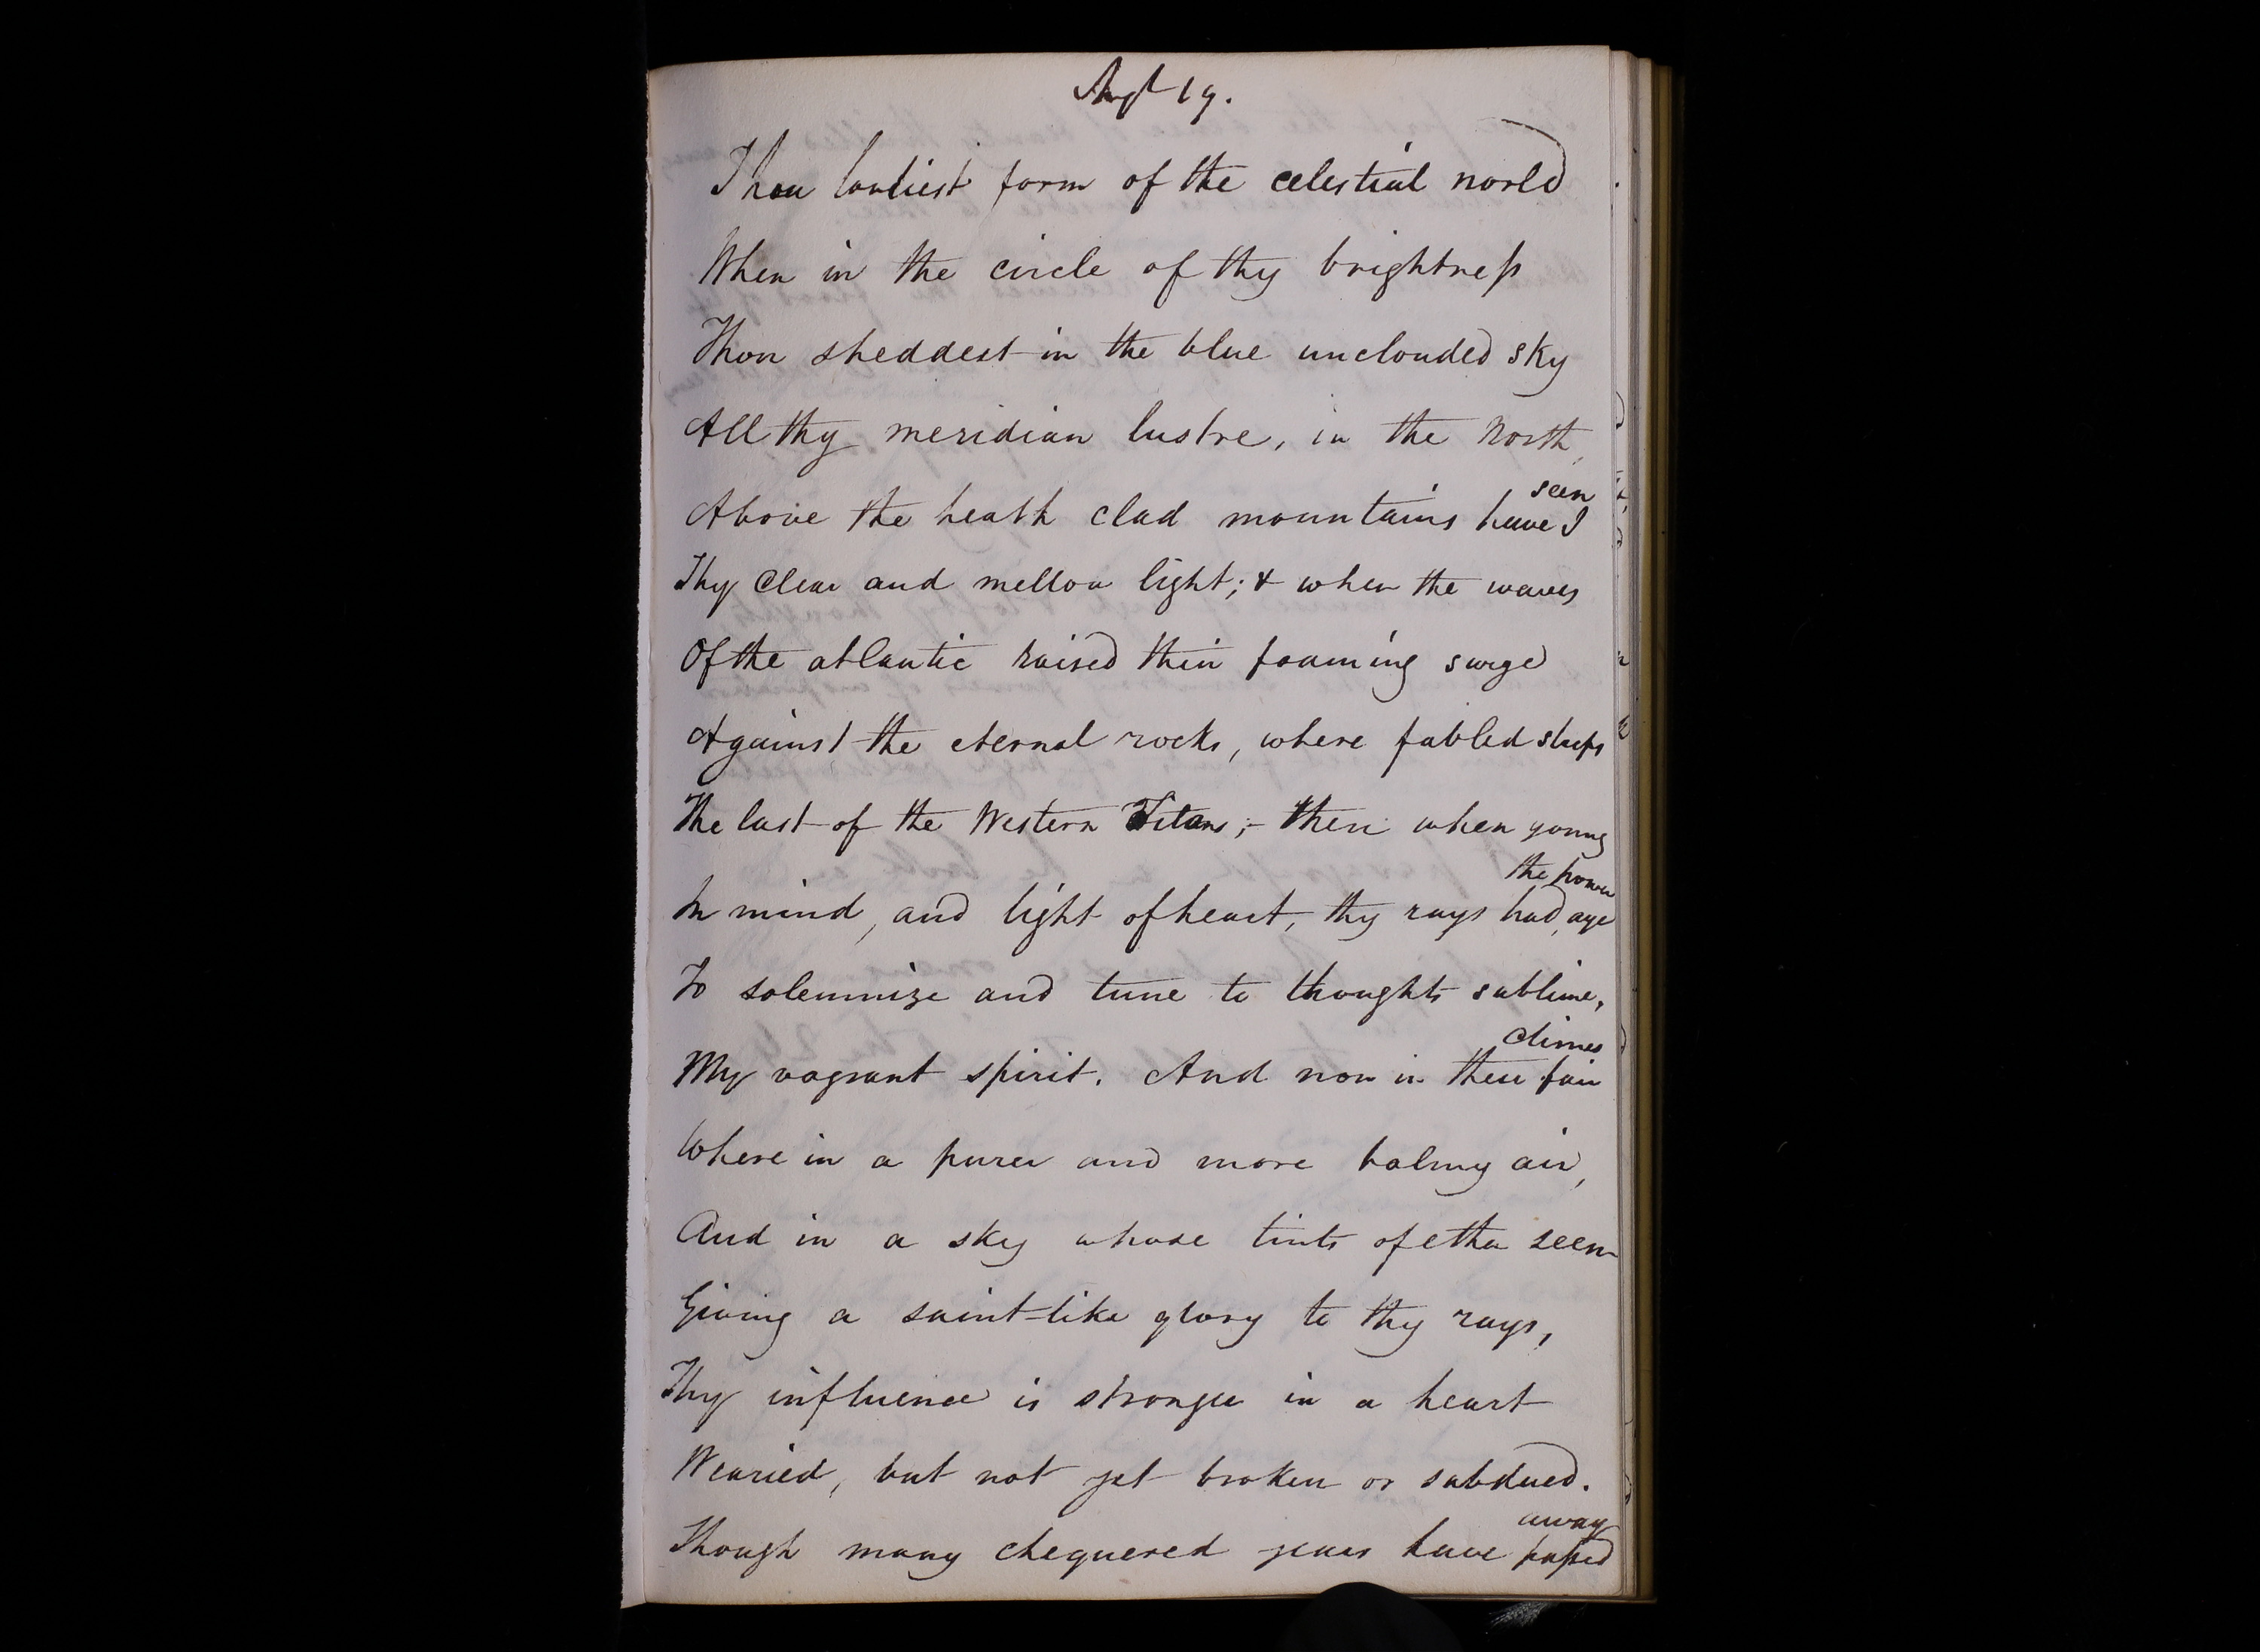 Augt 19.
Thou loveliest form of the celestial world
When in the circle of thy brightness
Thou sheddest in the blue unclouded sky
All thy meridian lustre, in the North,
Above the heath clad mountains have I seen
Thy clear and mellow light; & when the waves
Of the atlantic raised their foaming surge
Against the eternal rocks, where fabled sleeps
The last of the Western Titans; - then when young
In mind, and light of heart, thy rays had the power aye
To solemnize and tune to thoughts sublime,
My vagrant spirit. And now in these fair climes
Where in a purer and more balmy air,
And in a sky whose tints of ether seem
Giving a saint-like glory to thy rays,
Thy influence is stronger in a heart
Wearied, but not yet broken or subdued.
Though many chequered years have passed away